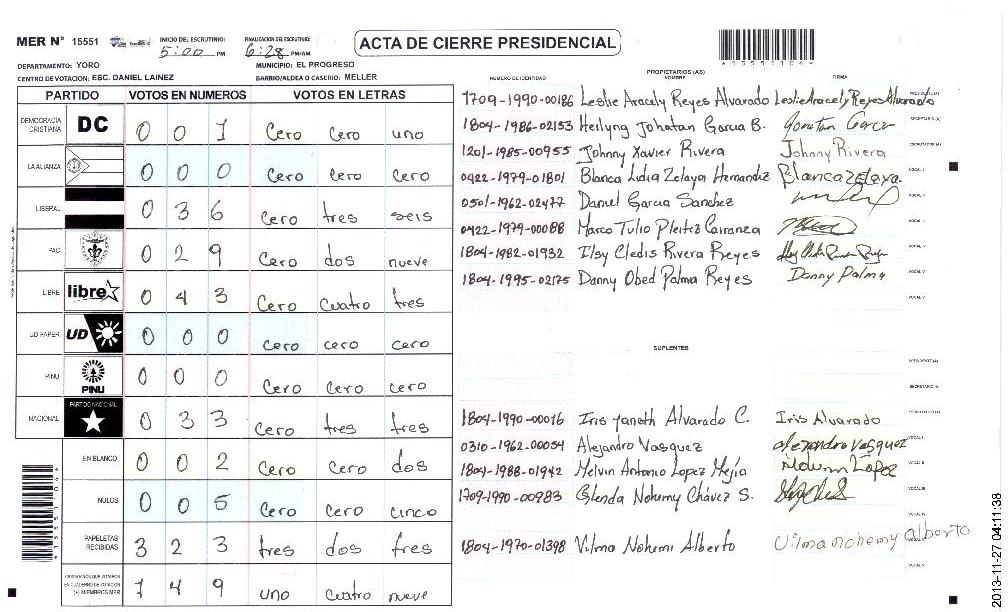 MER N° 15551 INICIO DEL ESCRUTINIO: 5:00 PM FINALIZACION DEL ESCRUTINIO: 6:28 PM/AM
ACTA DE CIERRE PRESIDENCIAL
DEPARTAMENTO: YORO MUNICIPIO: EL PROGRESO
CENTRO DE VOTACION: ESC. DANIEL LAINEZ BARRIO/ALDEA O CASERIO: MELLER
PARTIDO VOTOS EN NUMEROS VOTOS EN LETRAS
DEMOCRACIA CRISTIANA DC 0 0 1 Cero Cero uno
LA ALIANZA 0 0 0 Cero Cero Cero
LIBERAL 0 3 6 Cero tres seis
PAC 0 2 9 Cero dos nueve
LIBRE libre 0 4 3 Cero Cuatro tres
UD FAPER UD 0 0 0 Cero cero cero
PINU PINU 0 0 0 Cero Cero cero
NACIONAL PARTIDO NACIONAL 0 3 3 Cero tres tres
EN BLANCO 0 0 2 Cero Cero dos
NULOS 0 0 5 Cero Cero cinco
PAPELETAS RECIBIDAS 3 2 3 tres dos tres
CIUDADANOS QUE VOTARON EN CUADERNO DE VOTACION (+) MIEMBROS MER 1 4 9 uno Cuatro nueve
PROPIETARIOS (AS)
NUMERO DE IDENTIDAD NOMBRE FIRMA
1709-1990-00186 Leslie Aracely Reyes Alvarado Leslie Aracely Reyes Alvarado
1804-1986-02153 Herlyng Johatan Garcia B.
1201-1985-00955 Johnny Xavier Rivera Johnny Rivera
0422-1979-01801 Blanca Lidia Zelaya Hernandez Blanca Zelaya.
0501-1962-02477 Daniel Garcia Sanchez
0422-1979-00088 Marco Tulio Pleitez Carranza
1804-1982-01932 Ilsy Cledis Rivera Reyes
1804-1995-02175 Danny Obed Palma Reyes Danny Palma
SUPLENTES
1804-1990-00076 Iris Yaneth Alvarado C. Iris Alvarado
0310-1962-00054 Alejandro Vasquez Alejandro Vasquez
1804-1988-01942 Melvin Antonio Lopez Mejía Melvin Lopez
1709-1990-00983 Glenda Nohemy Chávez S.
1804-1970-01398 Vilma Nohemi Alberto Vilma nohemy Alberto
2013-11-27 04:11:38